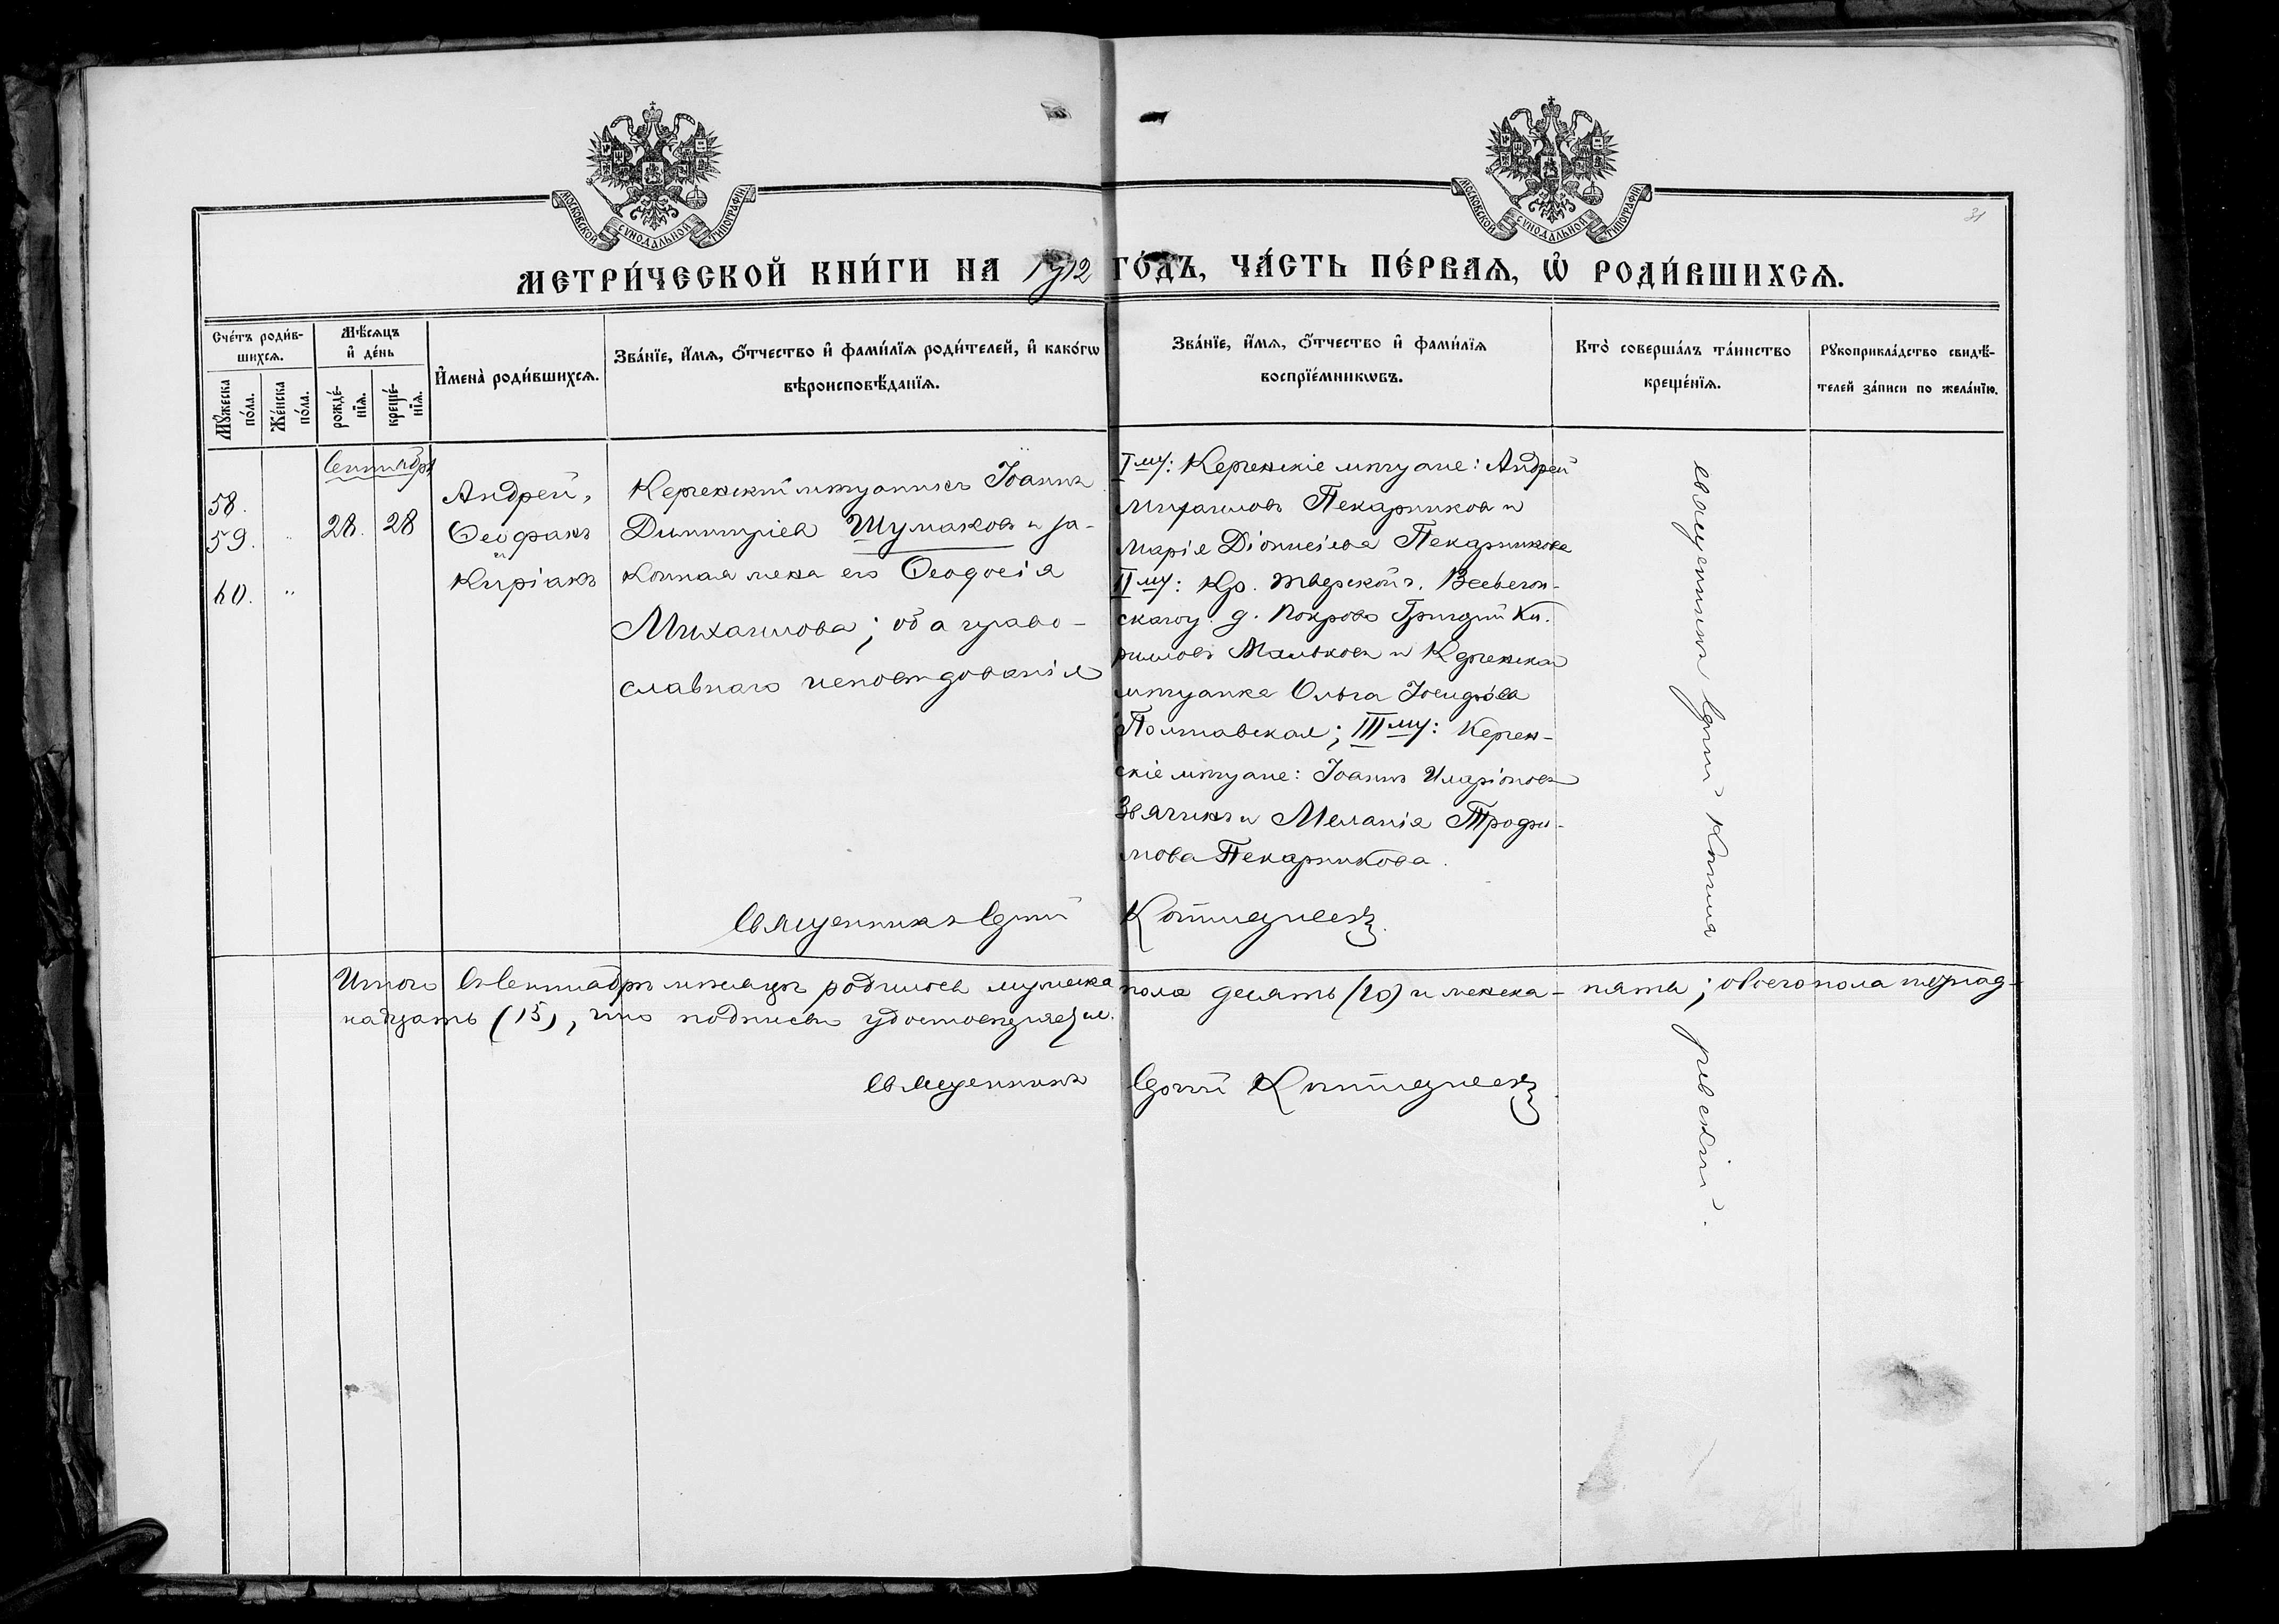 МОСКОВСКОЙ СѴНОДАЛЬНОЙ ТИПОГРАФІИ
МОСКОВСКОЙ СѴНОДАЛЬНОЙ ТИПОГРАФІИ
31
МЕТРИ́ЧЕСКОЙ КНИ́ГИ НА 1912 ГО́ДЪ, ЧА́СТЬ ПЕ́РВАѦ, Ѡ҆ РОДИ́ВШИХСѦ.
Сче́тъ роди́в-
шихсѧ.
Мꙋ́жеска
по́ла.
Же́нска
по́ла.
Мѣ́сѧцъ
и҆ де́нь
рожде́-
нїѧ.
креще́-
нїѧ.
И҆мена̀ роди́вшихсѧ.
Зва́нїе, и҆́мѧ, ѻ҆́тчество и҆ фами́лїѧ роди́телей, и҆ како́гѡ
вѣроисповѣ́данїѧ.
Зва́нїе, и҆́мѧ, ѻ҆́тчество и҆ фами́лїѧ
воспрїе́мникѡвъ.
Кто̀ соверша́лъ та́инство
креще́нїѧ.
Рꙋкоприкла́дство свидѣ́-
телей за́писи по жела́нїю.
Сентябрь
58.
59. "
60. "
28. 28
Андрей,
Ѳеофанъ
и
Киріакъ
Керченскій мѣщанинъ Іоаннъ
Димитріевъ Шумаковъ и за-
конная жена его Ѳеодосія
Михаилова; оба право-
славнаго исповѣдованія
I му: Керченскіе мѣщане: Андрей
Михаиловъ Пекарниковъ и
Марія Діонисіева Пекарникова
II му: Кр. Тверской г. Весьегон-
скаго у. д. Покрова Григорій Ки-
рилловъ Мальковъ и Керченская
мѣщанка Ольга Іосифова
Полтавская; III му: Керчен-
скіе мѣщане: Іоаннъ Иларіоновъ
Звягинъ и Меланія Трофи-
мова Пекарникова.
священникъ Сергій
Священникъ Сергій
Итого въ Сентябрѣ мѣсяцѣ родилось мужеска пола десять (10) и женска - пять; обоего пола пятнад-
надцать (15), что подписью удостовѣряемъ.
Священникъ Сергій